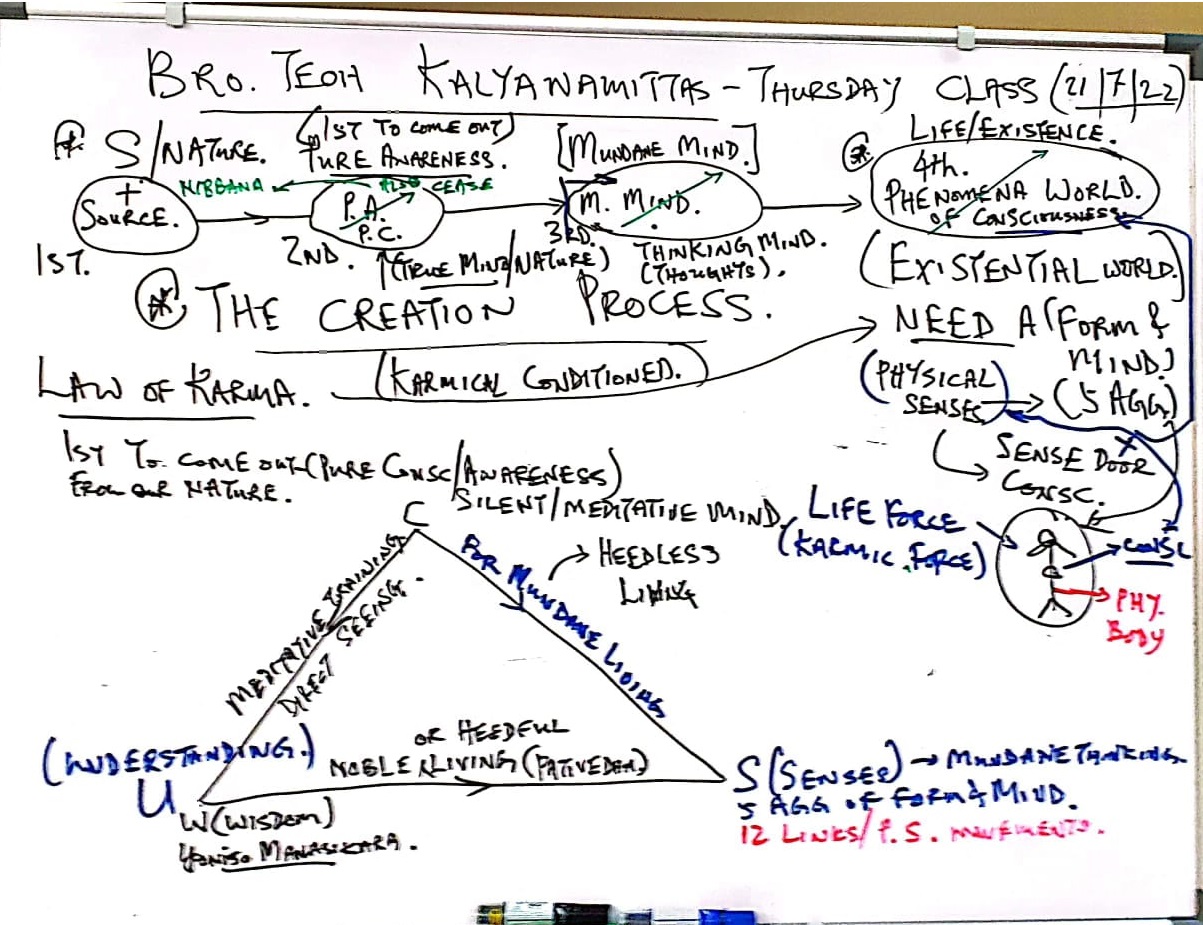 BRO. TEOH KALYANAMITTAS - THURSDAY CLASS (21/7/22)
S/NATURE.
(1ST TO COME OUT)
PURE AWARENESS.
[MUNDANE MIND.]
LIFE/EXISTENCE.
+
SOURCE.
1ST.
NIBBANA
ALSO CEASE
P.A.
P.C.
2ND.
(TRUE MIND/NATURE)
M. MIND.
3RD.
THINKING MIND.
(THOUGHTS).
4th.
PHENOMENA WORLD.
OF CONSCIOUSNESS.
(EXISTENTIAL WORLD.)
THE CREATION PROCESS.
NEED A (FORM &
MIND)
LAW OF KARMA.
(KARMICAL CONDITIONED.)
(PHYSICAL)
SENSES
(5 AGG)
1ST TO COME OUT (PURE CONSC/AWARENESS)
FROM OUR NATURE.
SILENT/MEDITATIVE MIND.
SENSE DOOR
CONSC.
LIFE FORCE
(KARMIC FORCE)
CONSC
PHY.
BODY
C
MEDITATIVE TRAINING
DIRECT SEEING.
FOR MUNDANE LIVING
HEEDLESS
LIVING
(UNDERSTANDING.)
U
OR HEEDFUL
NOBLE LIVING
W (WISDOM)
YONISO MANASIKARA.
S (SENSES) → MUNDANE THINKING.
5 AGG OF FORM & MIND.
12 LINKS/P.S. MOVEMENTS.